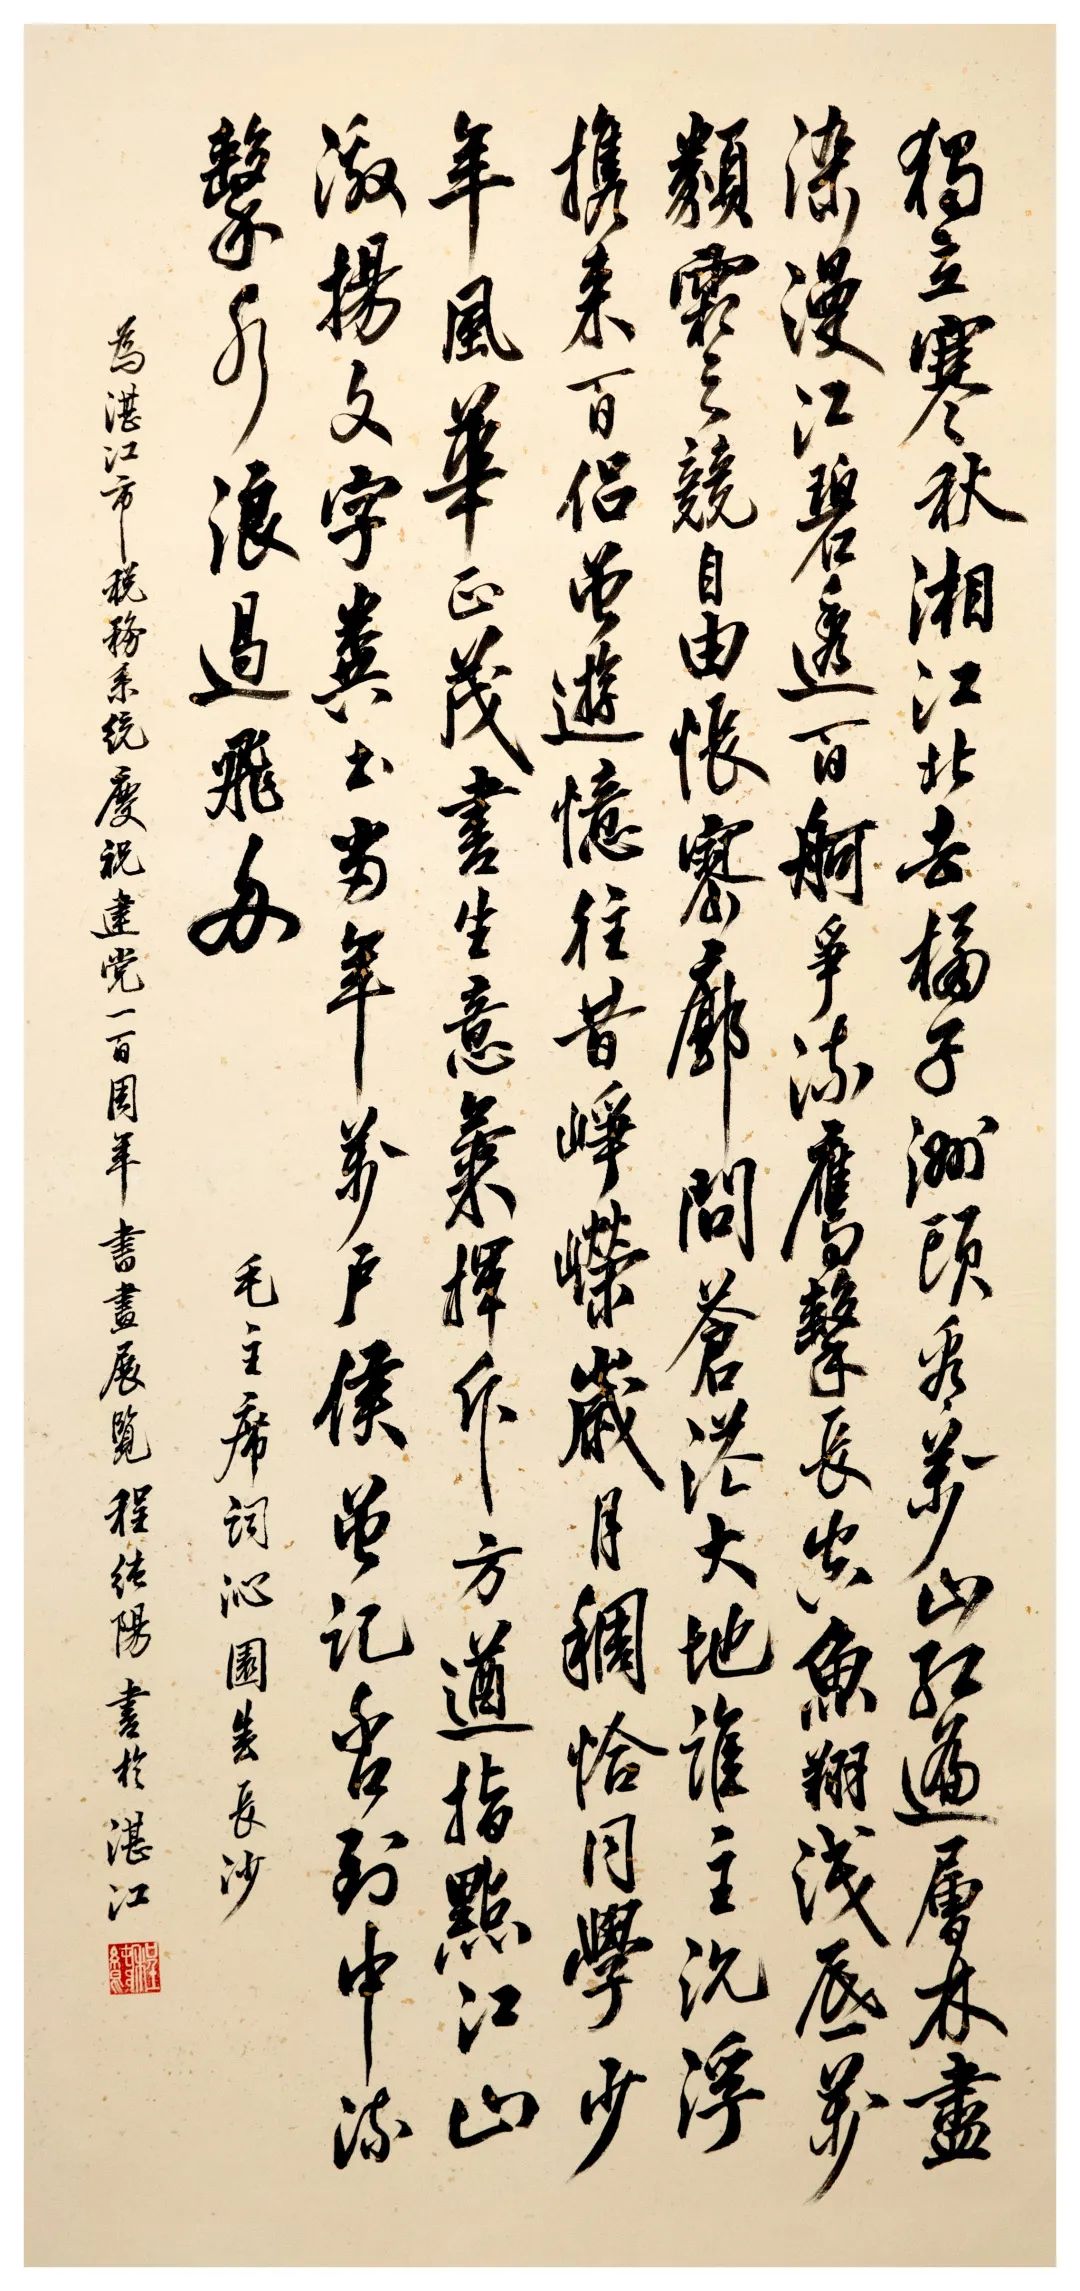 獨立寒秋湘江北去橘子洲頭看萬山紅遍層林盡
染漫江碧透百舸爭流鷹擊長空魚翔淺底萬
類霜天競自由悵寥廓問蒼茫大地誰主沉浮
携来百侣曾遊憶往昔崢嶸歲月稠恰同學少
年風華正茂書生意氣揮斥方遒指點江山
激揚文字糞土当年萬户侯曾記否到中流
擊水浪遏飛舟
毛主席詞沁園春長沙
為湛江市税務系統慶祝建党一百周年書畫展覽程純陽書於湛江